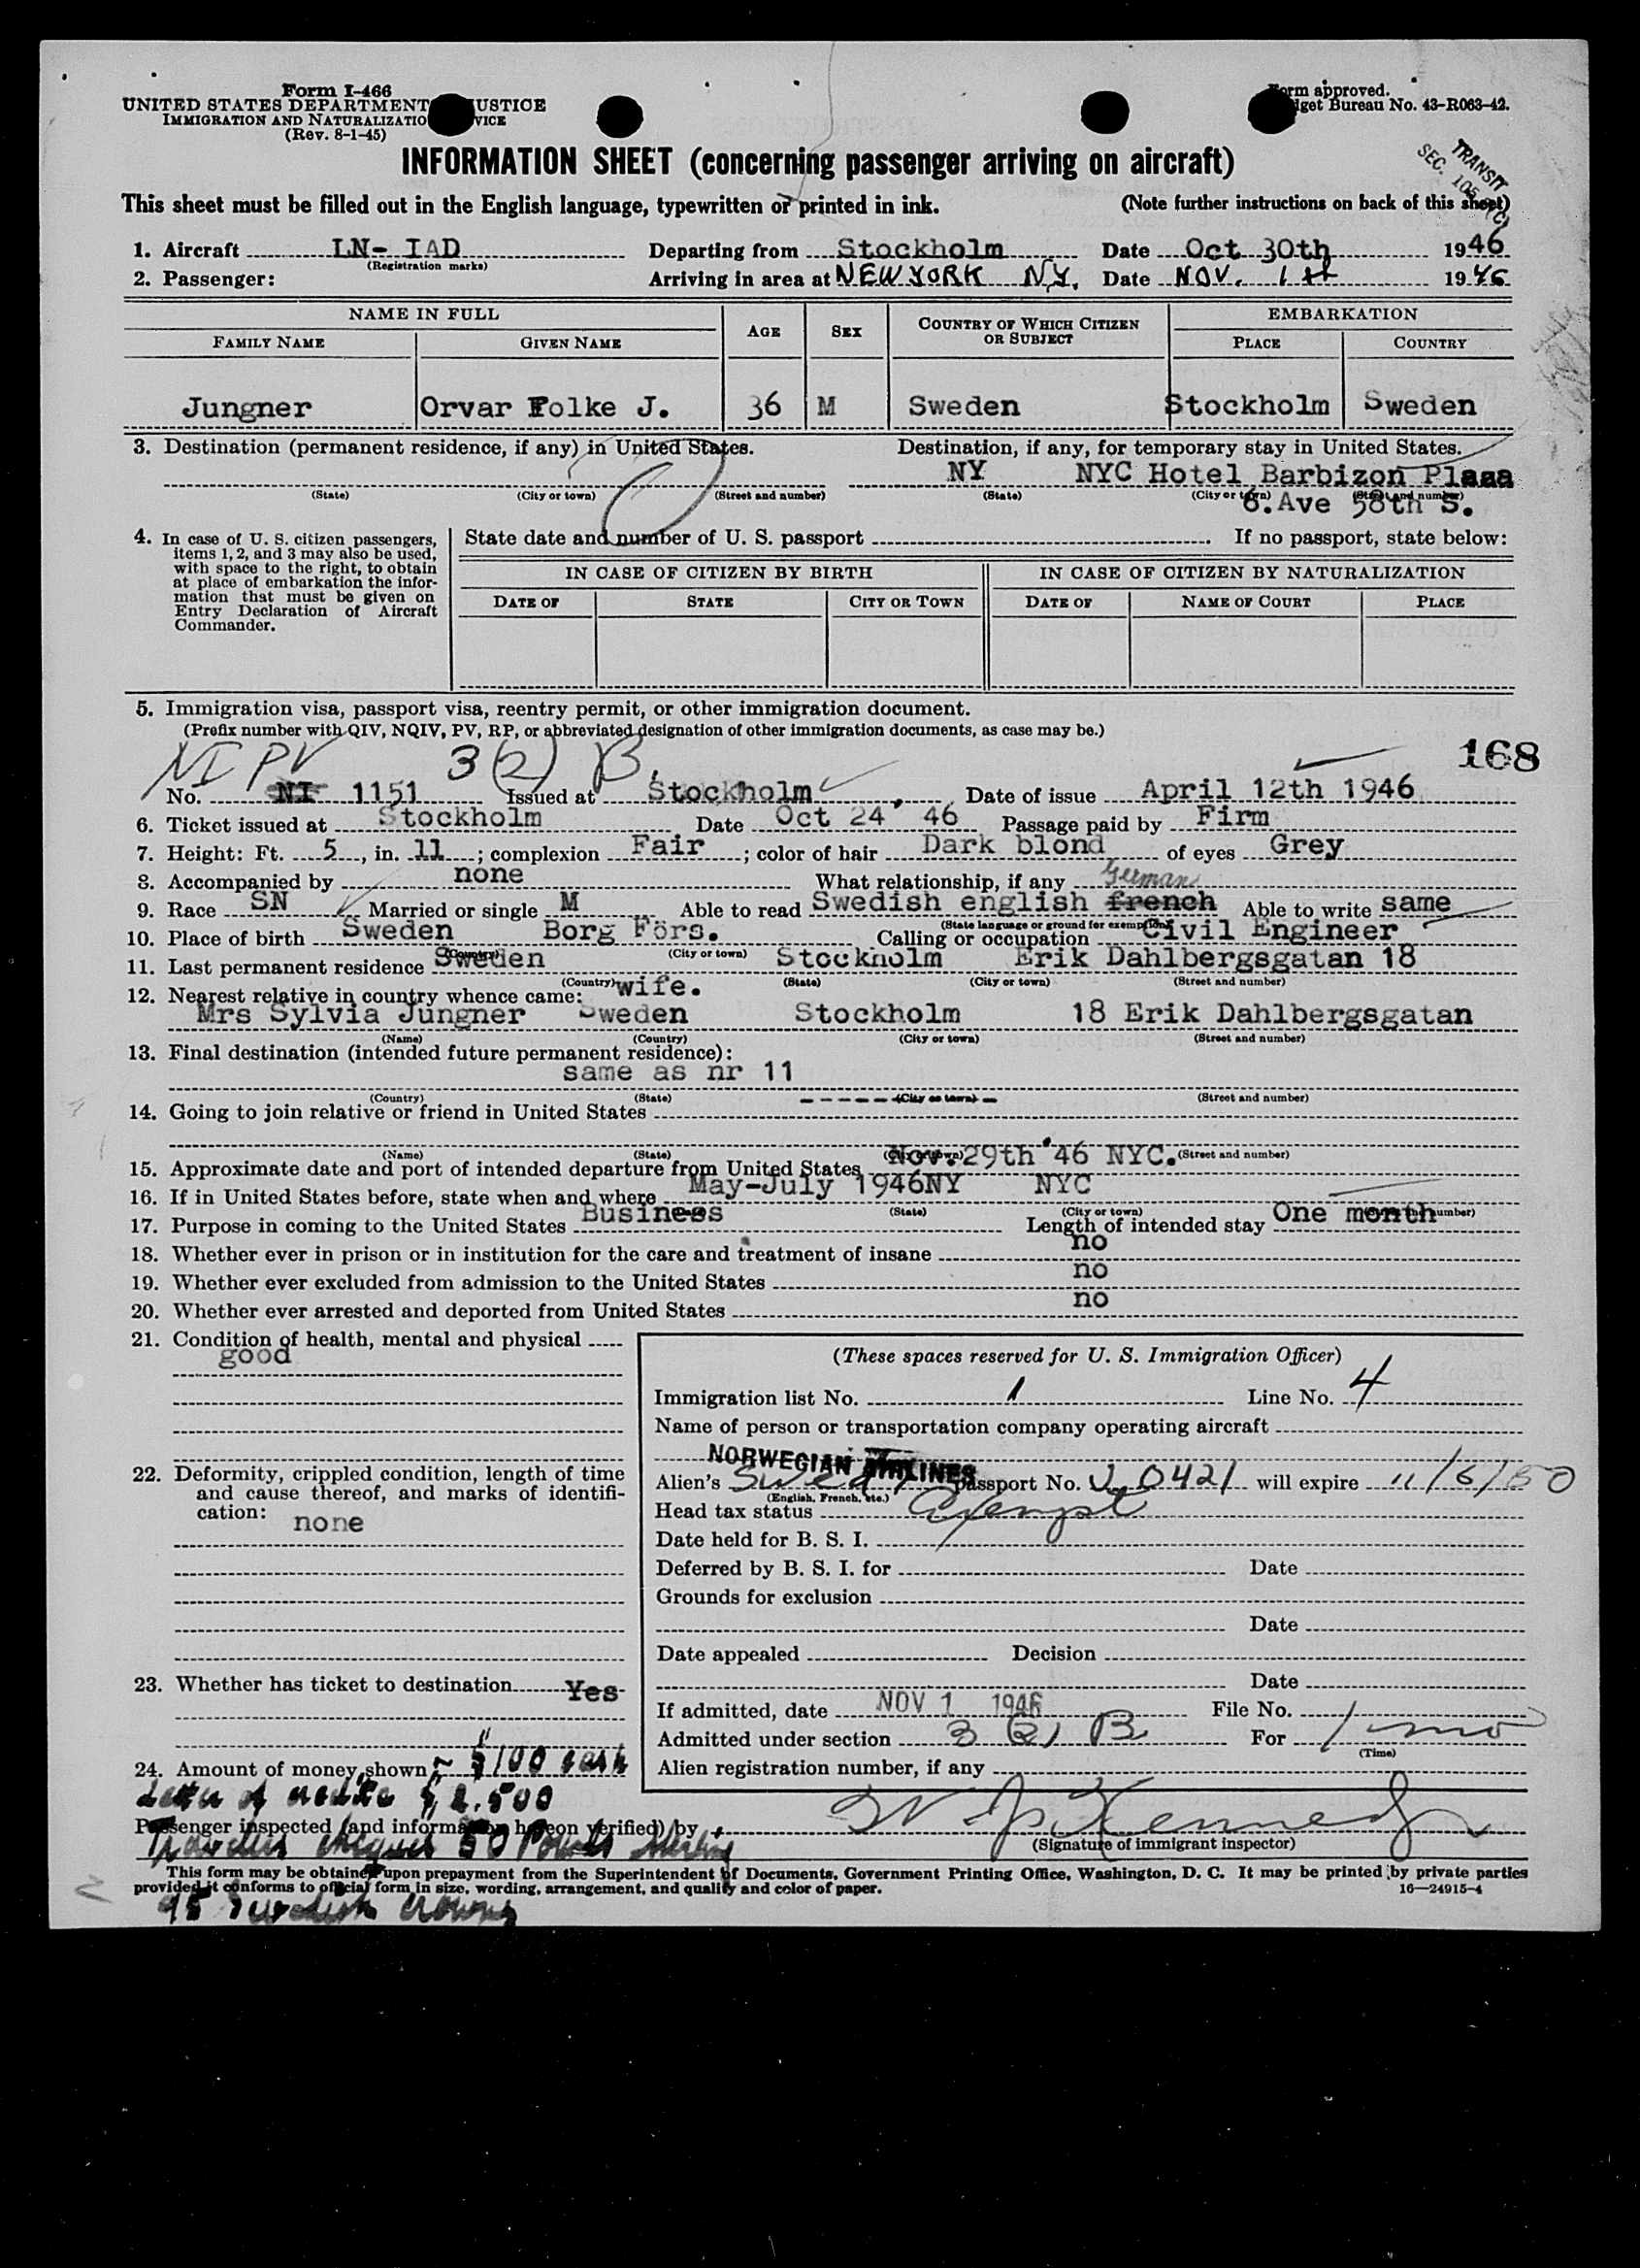 Form I-466
UNITED STATES DEPARTMENT USTICE
IMMIGRATION AND NATURALIZATIO VICE
(Rev. 8-1-45)
Form approved.
dget Bureau No. 43-R063-42.
TRANSIT
SEC. 105
INFORMATION SHEET (concerning passenger arriving on aircraft)
This sheet must be filled out in the English language, typewritten or printed in ink. (Note further instructions on back of this sheet)
1. Aircraft LN- IAD Departing from Stockholm Date Oct 30th 1946
(Registration marks)
2. Passenger: Arriving in area at NEW YORK NY. Date NOV. 1st 1946
NAME IN FULL AGE SEX COUNTRY OF WHICH CITIZEN OR SUBJECT EMBARKATION
FAMILY NAME GIVEN NAME PLACE COUNTRY
Jungner Orvar Folke J. 36 M Sweden Stockholm Sweden
3. Destination (permanent residence, if any) in United States. Destination, if any, for temporary stay in United States.
NY NYC Hotel Barbizon Plaaa
(State) (City or town) (Street and number) (State) (City or town) (Street and number)
6.Ave 58th S.
4. In case of U. S. citizen passengers, items 1, 2, and 3 may also be used, with space to the right, to obtain at place of embarkation the information that must be given on Entry Declaration of Aircraft Commander.
State date and number of U. S. passport If no passport, state below:
IN CASE OF CITIZEN BY BIRTH IN CASE OF CITIZEN BY NATURALIZATION
DATE OF STATE CITY OR TOWN DATE OF NAME OF COURT PLACE
5. Immigration visa, passport visa, reentry permit, or other immigration document.
(Prefix number with QIV, NQIV, PV, RP, or abbreviated designation of other immigration documents, as case may be.)
NI PV 3(2) B. 168
No. NI 1151 Issued at Stockholm, Date of issue April 12th 1946
6. Ticket issued at Stockholm Date Oct 24 46 Passage paid by Firm
7. Height: Ft. 5, in. 11; complexion Fair; color of hair Dark blond of eyes Grey
8. Accompanied by none What relationship, if any
German
9. Race SN Married or single M Able to read Swedish english french Able to write same
(State language or ground for exemption)
10. Place of birth Sweden Borg Förs. Calling or occupation Civil Engineer
(Country) (City or town)
11. Last permanent residence Sweden Stockholm Erik Dahlbergsgatan 18
(Country) (State) (City or town) (Street and number)
12. Nearest relative in country whence came: wife.
Mrs Sylvia Jungner Sweden Stockholm 18 Erik Dahlbergsgatan
(Name) (Country) (City or town) (Street and number)
13. Final destination (intended future permanent residence):
same as nr 11
(Country) (State) (City or town) (Street and number)
14. Going to join relative or friend in United States
(Name) (State) (City or town) (Street and number)
15. Approximate date and port of intended departure from United States Nov. 29th '46 NYC.
16. If in United States before, state when and where May-July 1946 NY NYC
(State) (City or town) (Street and number)
17. Purpose in coming to the United States Business Length of intended stay One month
18. Whether ever in prison or in institution for the care and treatment of insane no
19. Whether ever excluded from admission to the United States no
20. Whether ever arrested and deported from United States no
21. Condition of health, mental and physical
good
22. Deformity, crippled condition, length of time and cause thereof, and marks of identification:
none
23. Whether has ticket to destination Yes
24. Amount of money shown $100 cash
letter of credit $ 2.500
(These spaces reserved for U. S. Immigration Officer)
Immigration list No. 1 Line No. 4
Name of person or transportation company operating aircraft
NORWEGIAN AIRLINES
Alien's Swed. passport No. 0421 will expire 11/6/50
(English, French, etc.)
Head tax status Exempt
Date held for B. S. I.
Deferred by B. S. I. for Date
Grounds for exclusion
Date
Date appealed Decision
Date
If admitted, date NOV 1 1946 File No.
Admitted under section 3 (2) B For 1 mo
(Time)
Alien registration number, if any
Passenger inspected (and information hereon verified) by W J Kennedy
(Signature of immigrant inspector)
travellers cheques 50 Pounds sterling
This form may be obtained upon prepayment from the Superintendent of Documents, Government Printing Office, Washington, D. C. It may be printed by private parties
provided it conforms to official form in size, wording, arrangement, and quality and color of paper. 16—24915-4
95 Swedish crowns